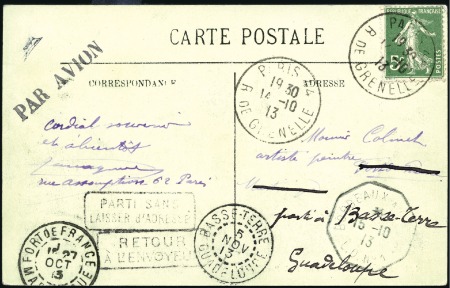 CARTE POSTALE
PAR AVION
CORRESPONDANCE
ADRESSE
RÉPUBLIQUE FRANÇAISE
POSTES
PARIS
R. DE GRENELLE
PARIS
19 30
14-10
13
R. DE GRENELLE
Cordial souvenir
et à bientôt
rue assomption 62 Paris
artiste peintre
parti à Basse-Terre
Guadeloupe
PARTI SANS
LAISSER D'ADRESSE
RETOUR
À L'ENVOYEUR
BASSE-TERRE
5
NOV
13
GUADELOUPE
15-10
13
FORT DE FRANCE
27
OCT
13
MARTINIQUE